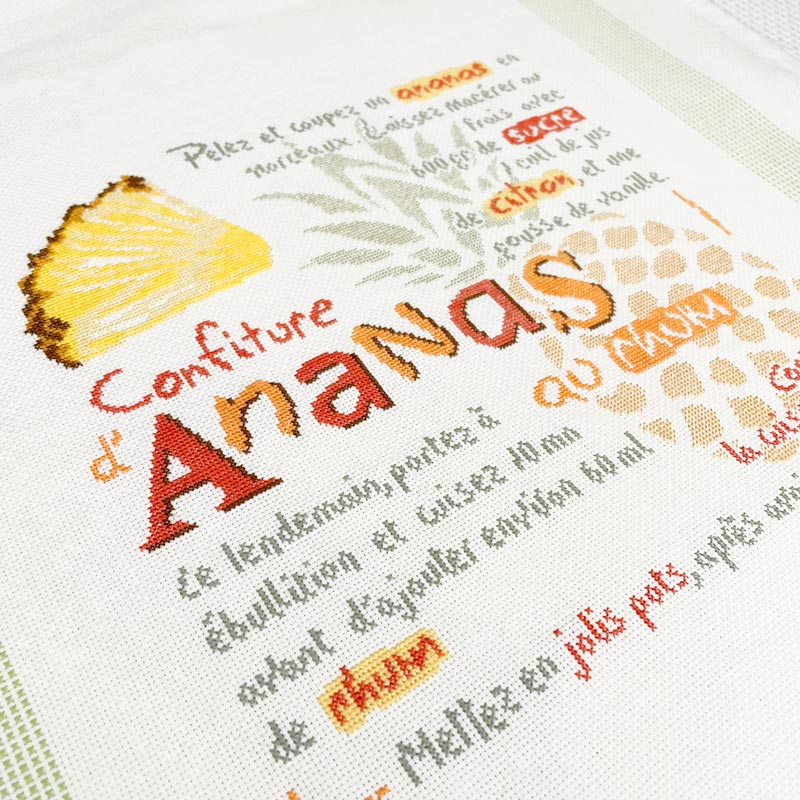 Pelez et coupez un ananas en
morceaux. Laissez macérer au
frais avec
600 gr de sucre
1 cuil de jus
de citron, et une
gousse de vanille.
Confiture
d'Ananas
au rhum
la
Le lendemain, portez à
ébullition et cuisez 10 mn
avant d'ajouter environ 60 ml
de rhum
Mettez en jolis pots, après